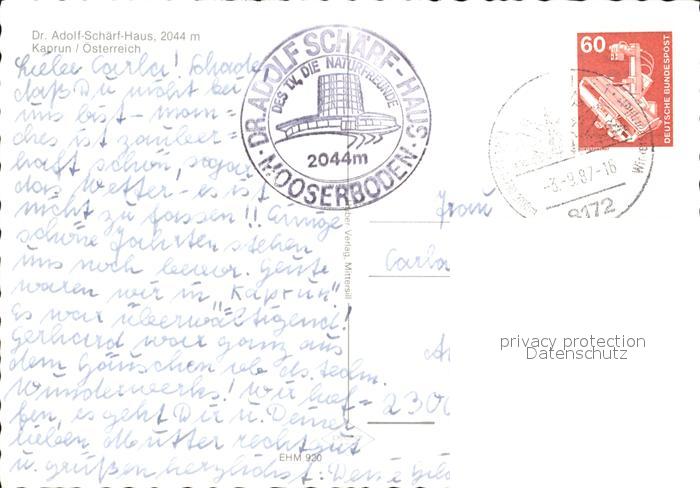 Dr. Adolf-Schärf-Haus, 2044 m
Kaprun / Österreich
Liebe Carla! Schade
daß Du nicht bei
uns bist - man =
ches ist zauber =
haft schön, sogar
das Wetter - es ist
nicht zu fassen!! Einige
schöne Fahrten stehen
uns noch bevor. Heute
waren wir in "Kaprun".
Es war überwältigend!
Gerhard war ganz aus
dem Häuschen ob ds. techn.
Wunderwerks! Wir hof =
fen, es geht Dir u. Deiner
lieben Mutter recht gut
u. grüßen herzlichst:
DR. ADOLF SCHÄRF-HAUS
DES TV. DIE NATURFREUNDE
2044m
MOOSERBODEN
60
DEUTSCHE BUNDESPOST
-3.-9.87-16
8172
Verlag, Mittersill
Frau
Carla
2300
EHM 920
privacy protection
Datenschutz